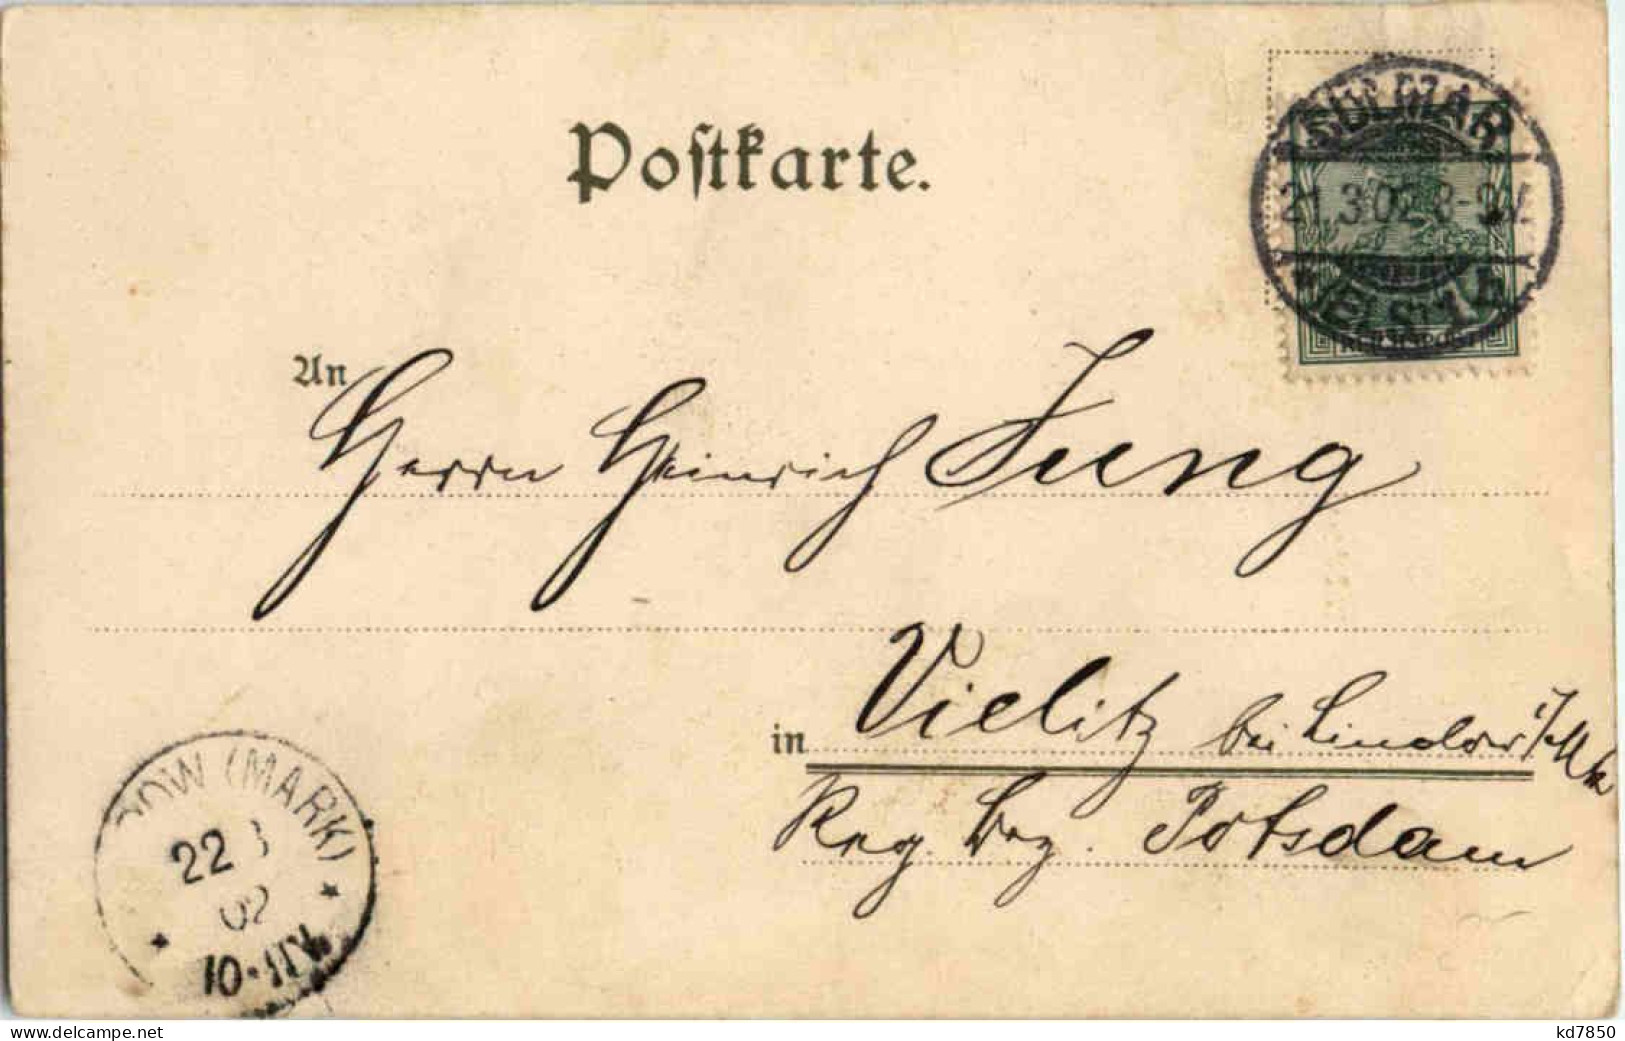 Postkarte.
COLMAR
21.3.02.8-9V.
* (ELS.) 1 b
REICHSPOST
An Herrn Heinrich Jung
in Vielitz bei Lindow i/Mk
Reg. Bez. Potsdam
DOW (MARK)
22 3
02
10-11V.
www.delcampe.net
kd7850